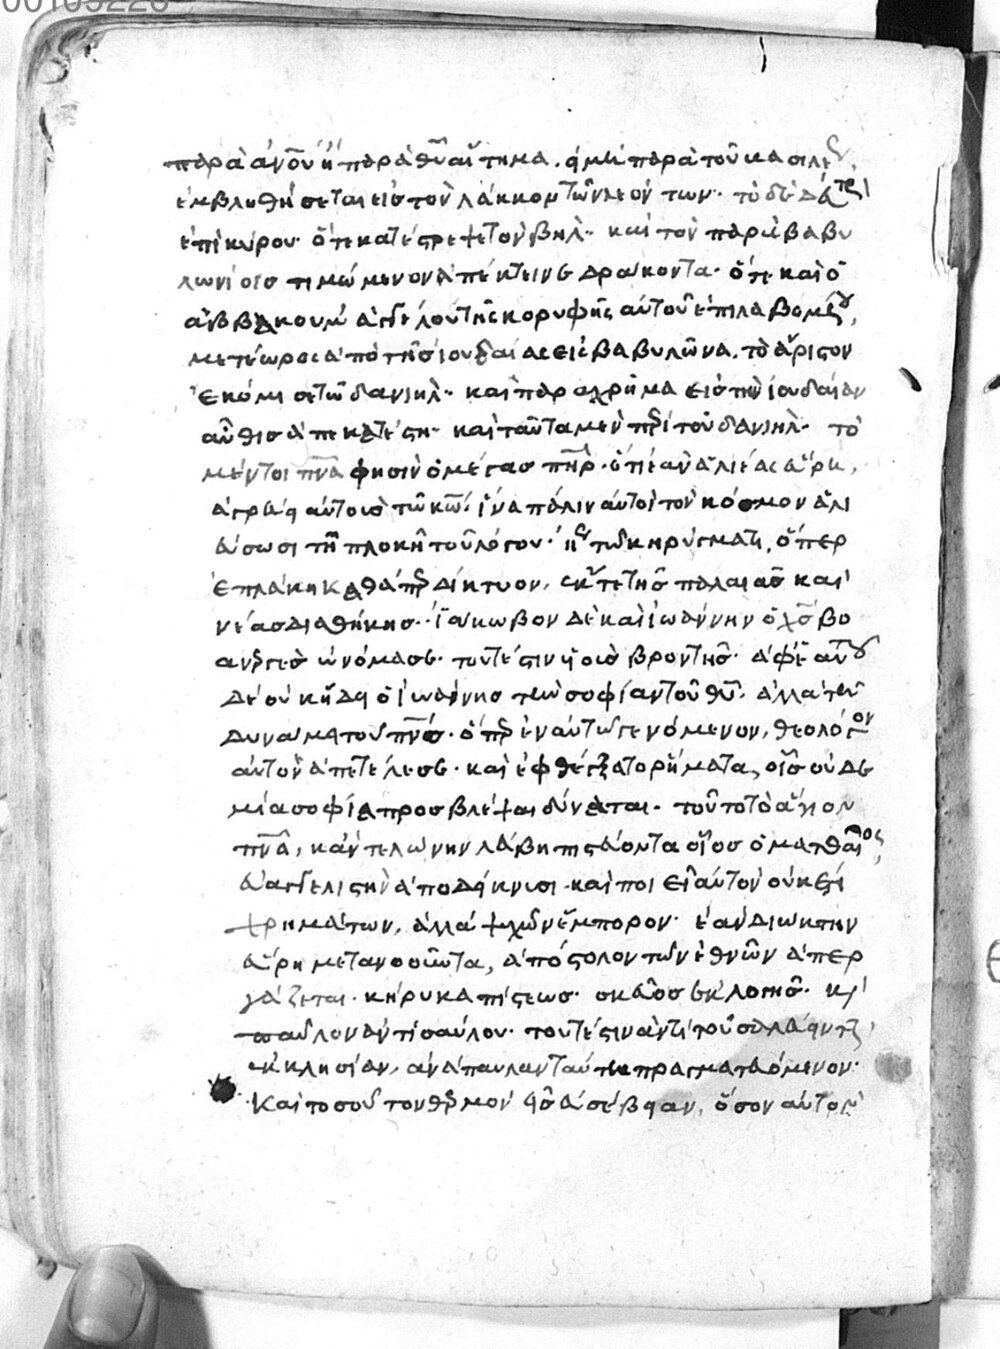 00105226
παρὰ ἀν̅ου ἢ παρὰ θ̅υ αἴτημα. εἰ μὴ παρὰ τοῦ βασιλέως,
ἐμβληθήσεται εἰς τὸν λάκκον τῶν λεόντων· τὸ δὲ δεύτερον
ἐπὶ κύρου· ὅτε κατέστρεψε τὸν βὴλ· καὶ τὸν παρὰ βαβυ
λωνίοις τιμώμενον ἀπέκτεινε δράκοντα· ὅτε καὶ ὁ
ἀββακοὺμ ἀγγέλου τῆς κορυφῆς αὐτοῦ ἐπιλαβομένου,
μετέωρος ἀπὸ τῆς ἰουδαίας εἰς βαβυλῶνα. τὸ ἄριστον
ἐκόμισε τῶ δανιὴλ· καὶ παραχρῆμα εἰς τὴν ἰουδαίαν
αὖθις ἀπεκατέστη· καὶ ταῦτα μὲν περὶ τοῦ δανιὴλ· τὸ
μέντοι πν̅α φησὶν ὁ μέγας πη̅ρ· ὅτι ἐὰν ἁλιέας εὕρη,
σαγηνεύει αὐτοὺς τῶ χω̅· ἵνα πάλιν αὐτοὶ τὸν κόσμον ἁλι
εύσωσι τῆ πλοκῆ τοῦ λόγου· ἤγουν τῶ κηρύγματι, ὅπερ
ἐπλάκη καθάπερ δίκτυον, ἔκ τε τῆς παλαιᾶς καὶ
νέας διαθήκης· ἰάκωβον δὲ καὶ ἰωάννην ὁ χ̅ς βο
ανεργὲς ὠνόμασε· τουτέστιν υἱοὺς βροντῆς· ἀφ' ἑαυτοῦ
δὲ οὐκ ἤδει ὁ ἰωάννης τὴν σοφίαν τοῦ θ̅υ, ἀλλὰ τὴν
δύναμιν τοῦ πν̅ς· ὅπερ ἐν αὐτῶ γενόμενον, θεολόγον
αὐτὸν ἀπετέλεσε· καὶ ἐφθέγξατο ῥήματα, οἷς οὐδε
μία σοφία προσβλέψαι δύναται· τοῦτο τὸ ἅγιον
πν̅α, κἂν τελώνην λάβη πιστεύοντα οἷος ὁ ματθαῖος,
εὐαγγελιστὴν ἀποδείκνυσι· καὶ ποιεῖ αὐτὸν οὐκέτι
χρημάτων, ἀλλὰ ψυχῶν ἔμπορον· ἐὰν διώκτην
εὕρη μετανοοῦντα, ἀπόστολον τῶν ἐθνῶν ἀπερ
γάζεται· κήρυκα πίστεως· σκεῦος ἐκλογῆς· καὶ
παῦλον ἀντὶ σαύλου· τουτέστιν ἀντὶ τοῦ σαλεύειν τὴν
ἐκκλησίαν, ἀνάπαυλαν ταύτη πραγματευόμενον·
καὶ τοσοῦτον θερμὸν εἰς εὐσέβειαν, ὅσον αὐτὸν